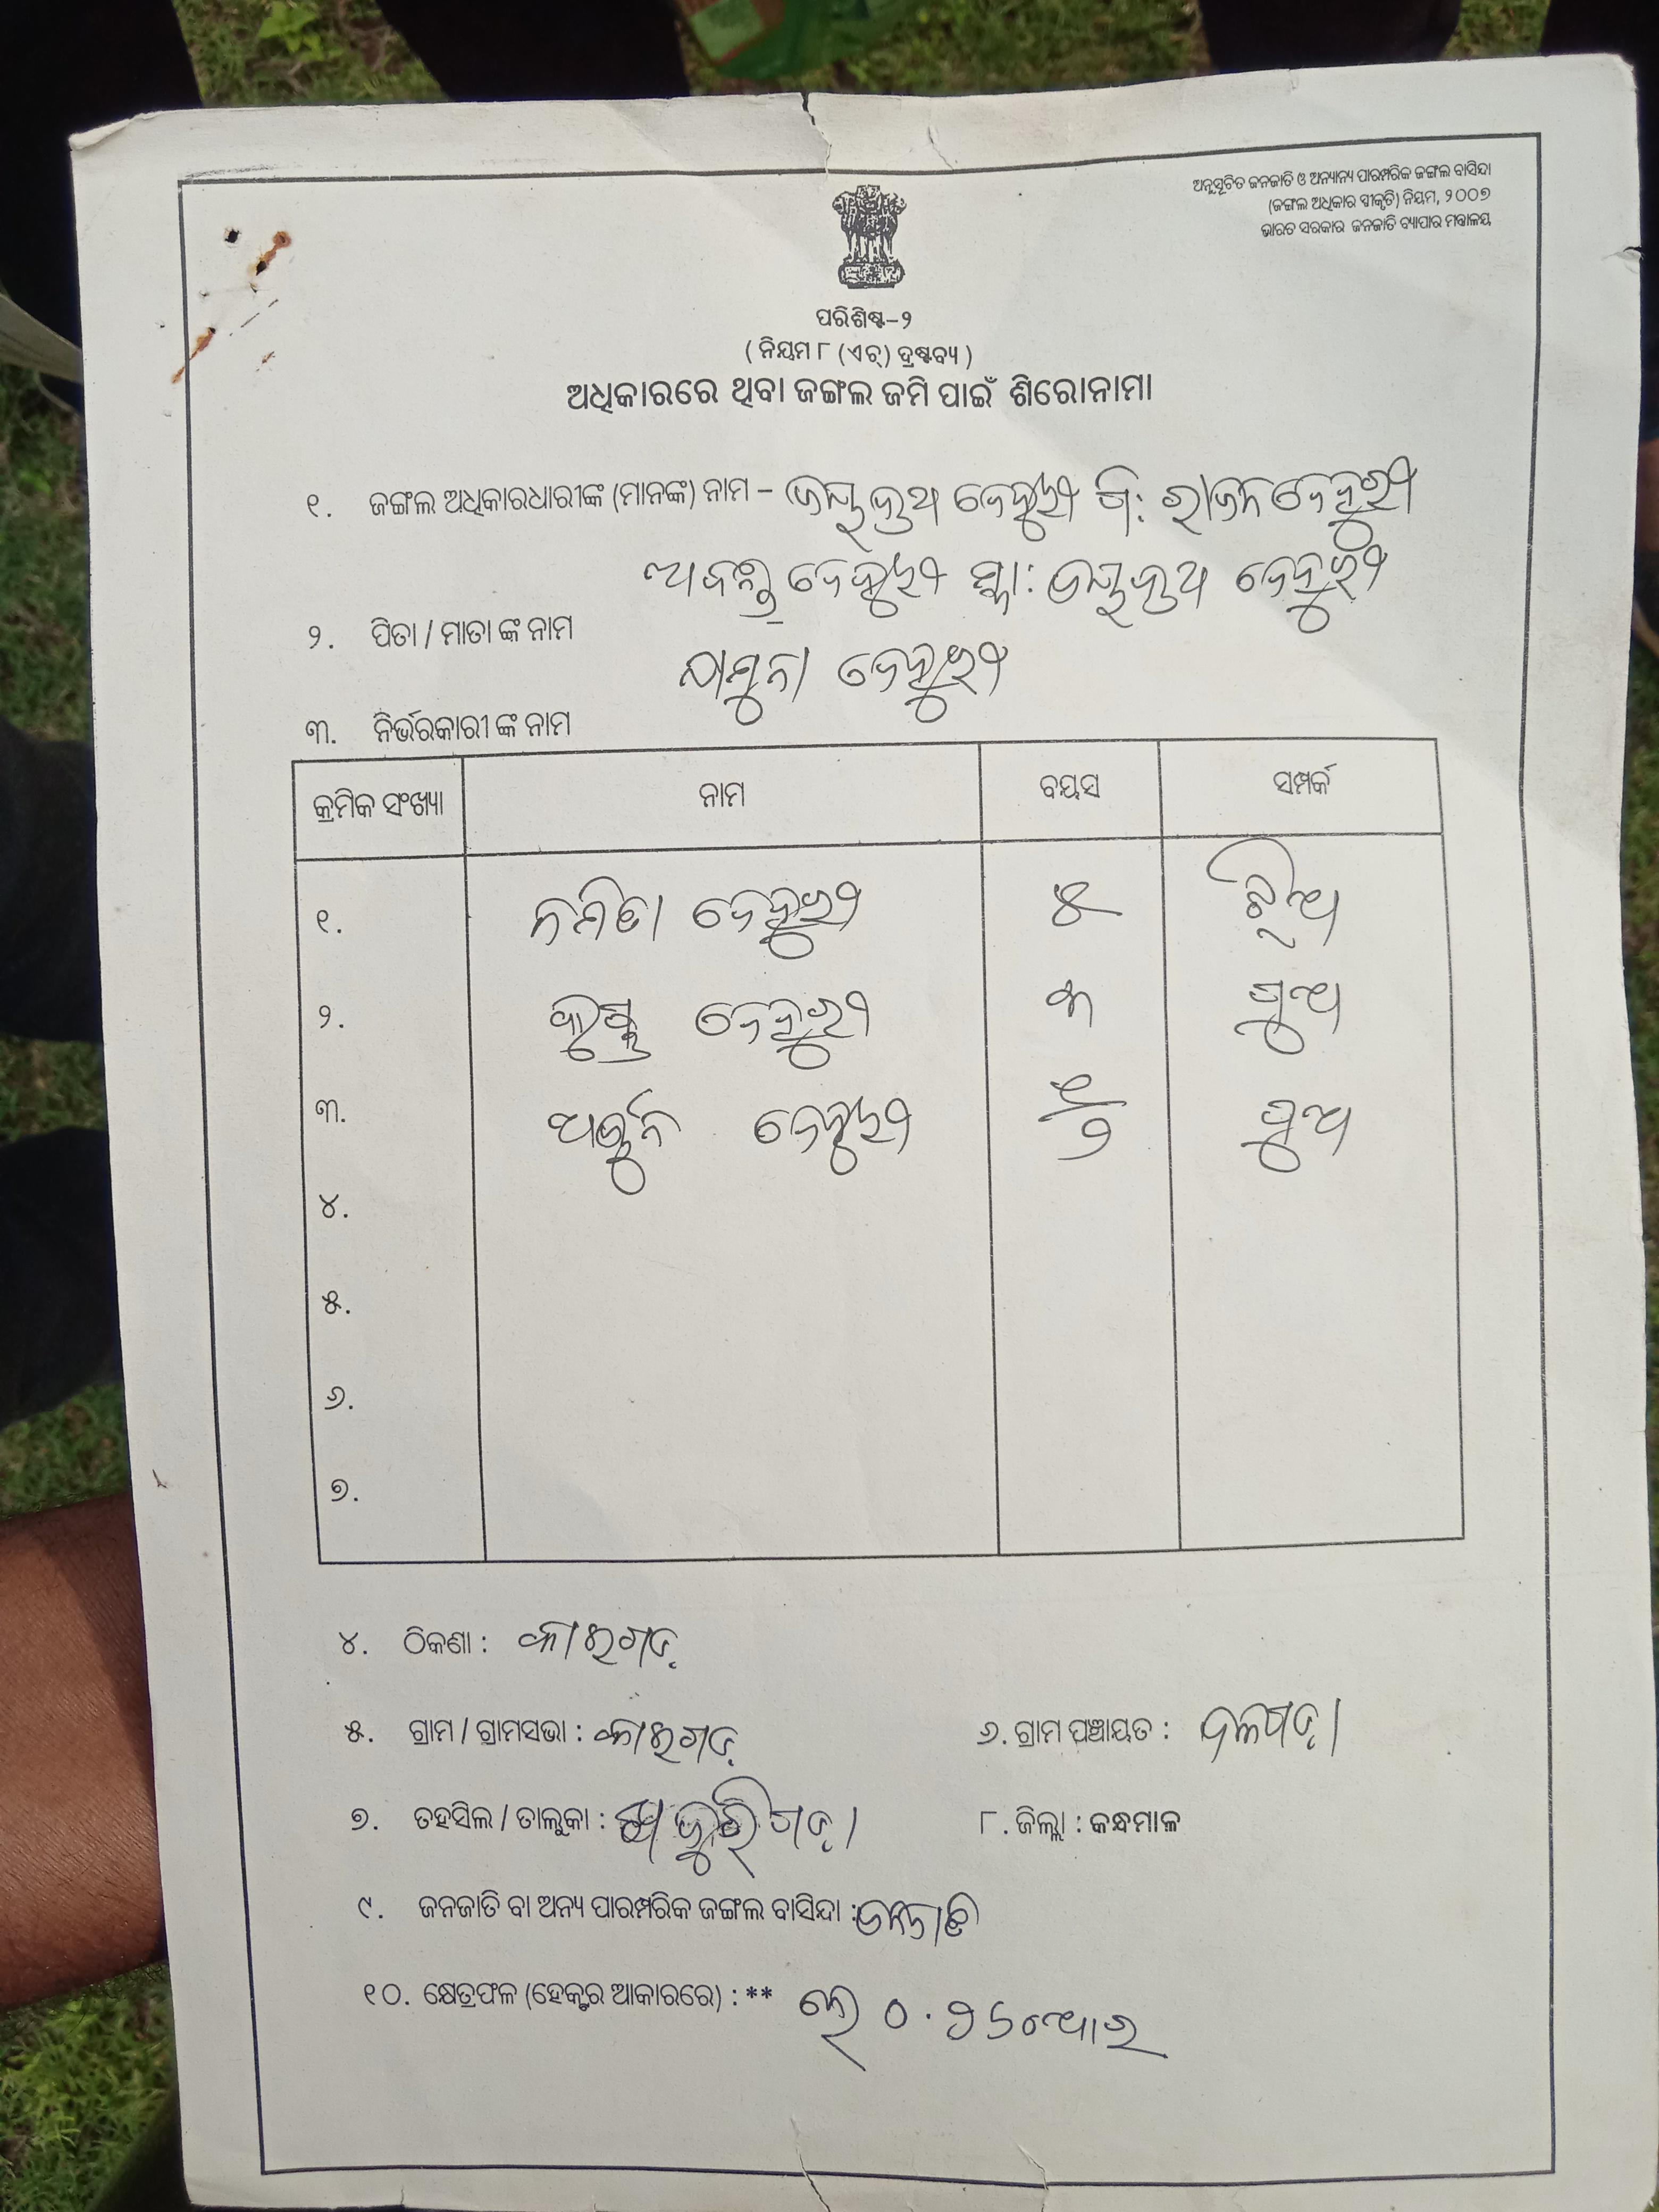 ଅନୁସୂଚିତ ଜନଜାତି ଓ ଅନ୍ୟାନ୍ୟ ପାରମ୍ପରିକ ଜଙ୍ଗଲ ବାସିନ୍ଦା
(ଜଙ୍ଗଲ ଅଧିକାର ସ୍ୱୀକୃତି) ନିୟମ, ୨୦୦୭
ଭାରତ ସରକାର ଜନଜାତି ବ୍ୟାପାର ମନ୍ତ୍ରାଳୟ
ପରିଶିଷ୍ଟ-୨
( ନିୟମ ୮ (ଏଚ୍) ଦ୍ରଷ୍ଟବ୍ୟ )
ଅଧିକାରରେ ଥିବା ଜଙ୍ଗଲ ଜମି ପାଇଁ ଶିରୋନାମା
୧. ଜଙ୍ଗଲ ଅଧିକାରଧାରୀଙ୍କ (ମାନଙ୍କ) ନାମ - ଦେହୁରୀ ପି: ଦେହୁରୀ
ଦେହୁରୀ ସ୍ୱା: ଦେହୁରୀ
୨. ପିତା / ମାତା ଙ୍କ ନାମ
ଯାମୁନା ଦେହୁରୀ
୩. ନିର୍ଭରକାରୀ ଙ୍କ ନାମ
କ୍ରମିକ ସଂଖ୍ୟା ନାମ ବୟସ ସମ୍ପର୍କ
୧. ନମିତା ଦେହୁରୀ ୫ ଝିଅ
୨. ଦେହୁରୀ ୩ ପୁଅ
୩. ଅର୍ଜୁନ ଦେହୁରୀ ପୁଅ
୪.
୫.
୬.
୭.
୪. ଠିକଣା : କାଇଗଡ଼
୫. ଗ୍ରାମ / ଗ୍ରାମସଭା : କାଇଗଡ଼ ୬. ଗ୍ରାମ ପଞ୍ଚାୟତ :
୭. ତହସିଲ / ତାଲୁକା : ଖଜୁରିଗଡ଼ା ୮. ଜିଲ୍ଲା : କନ୍ଧମାଳ
୯. ଜନଜାତି ବା ଅନ୍ୟ ପାରମ୍ପରିକ ଜଙ୍ଗଲ ବାସିନ୍ଦା : ଜନଜାତି
୧୦. କ୍ଷେତ୍ରଫଳ (ହେକ୍ଟର ଆକାରରେ) : ** ହେ ୦.୨୬୦